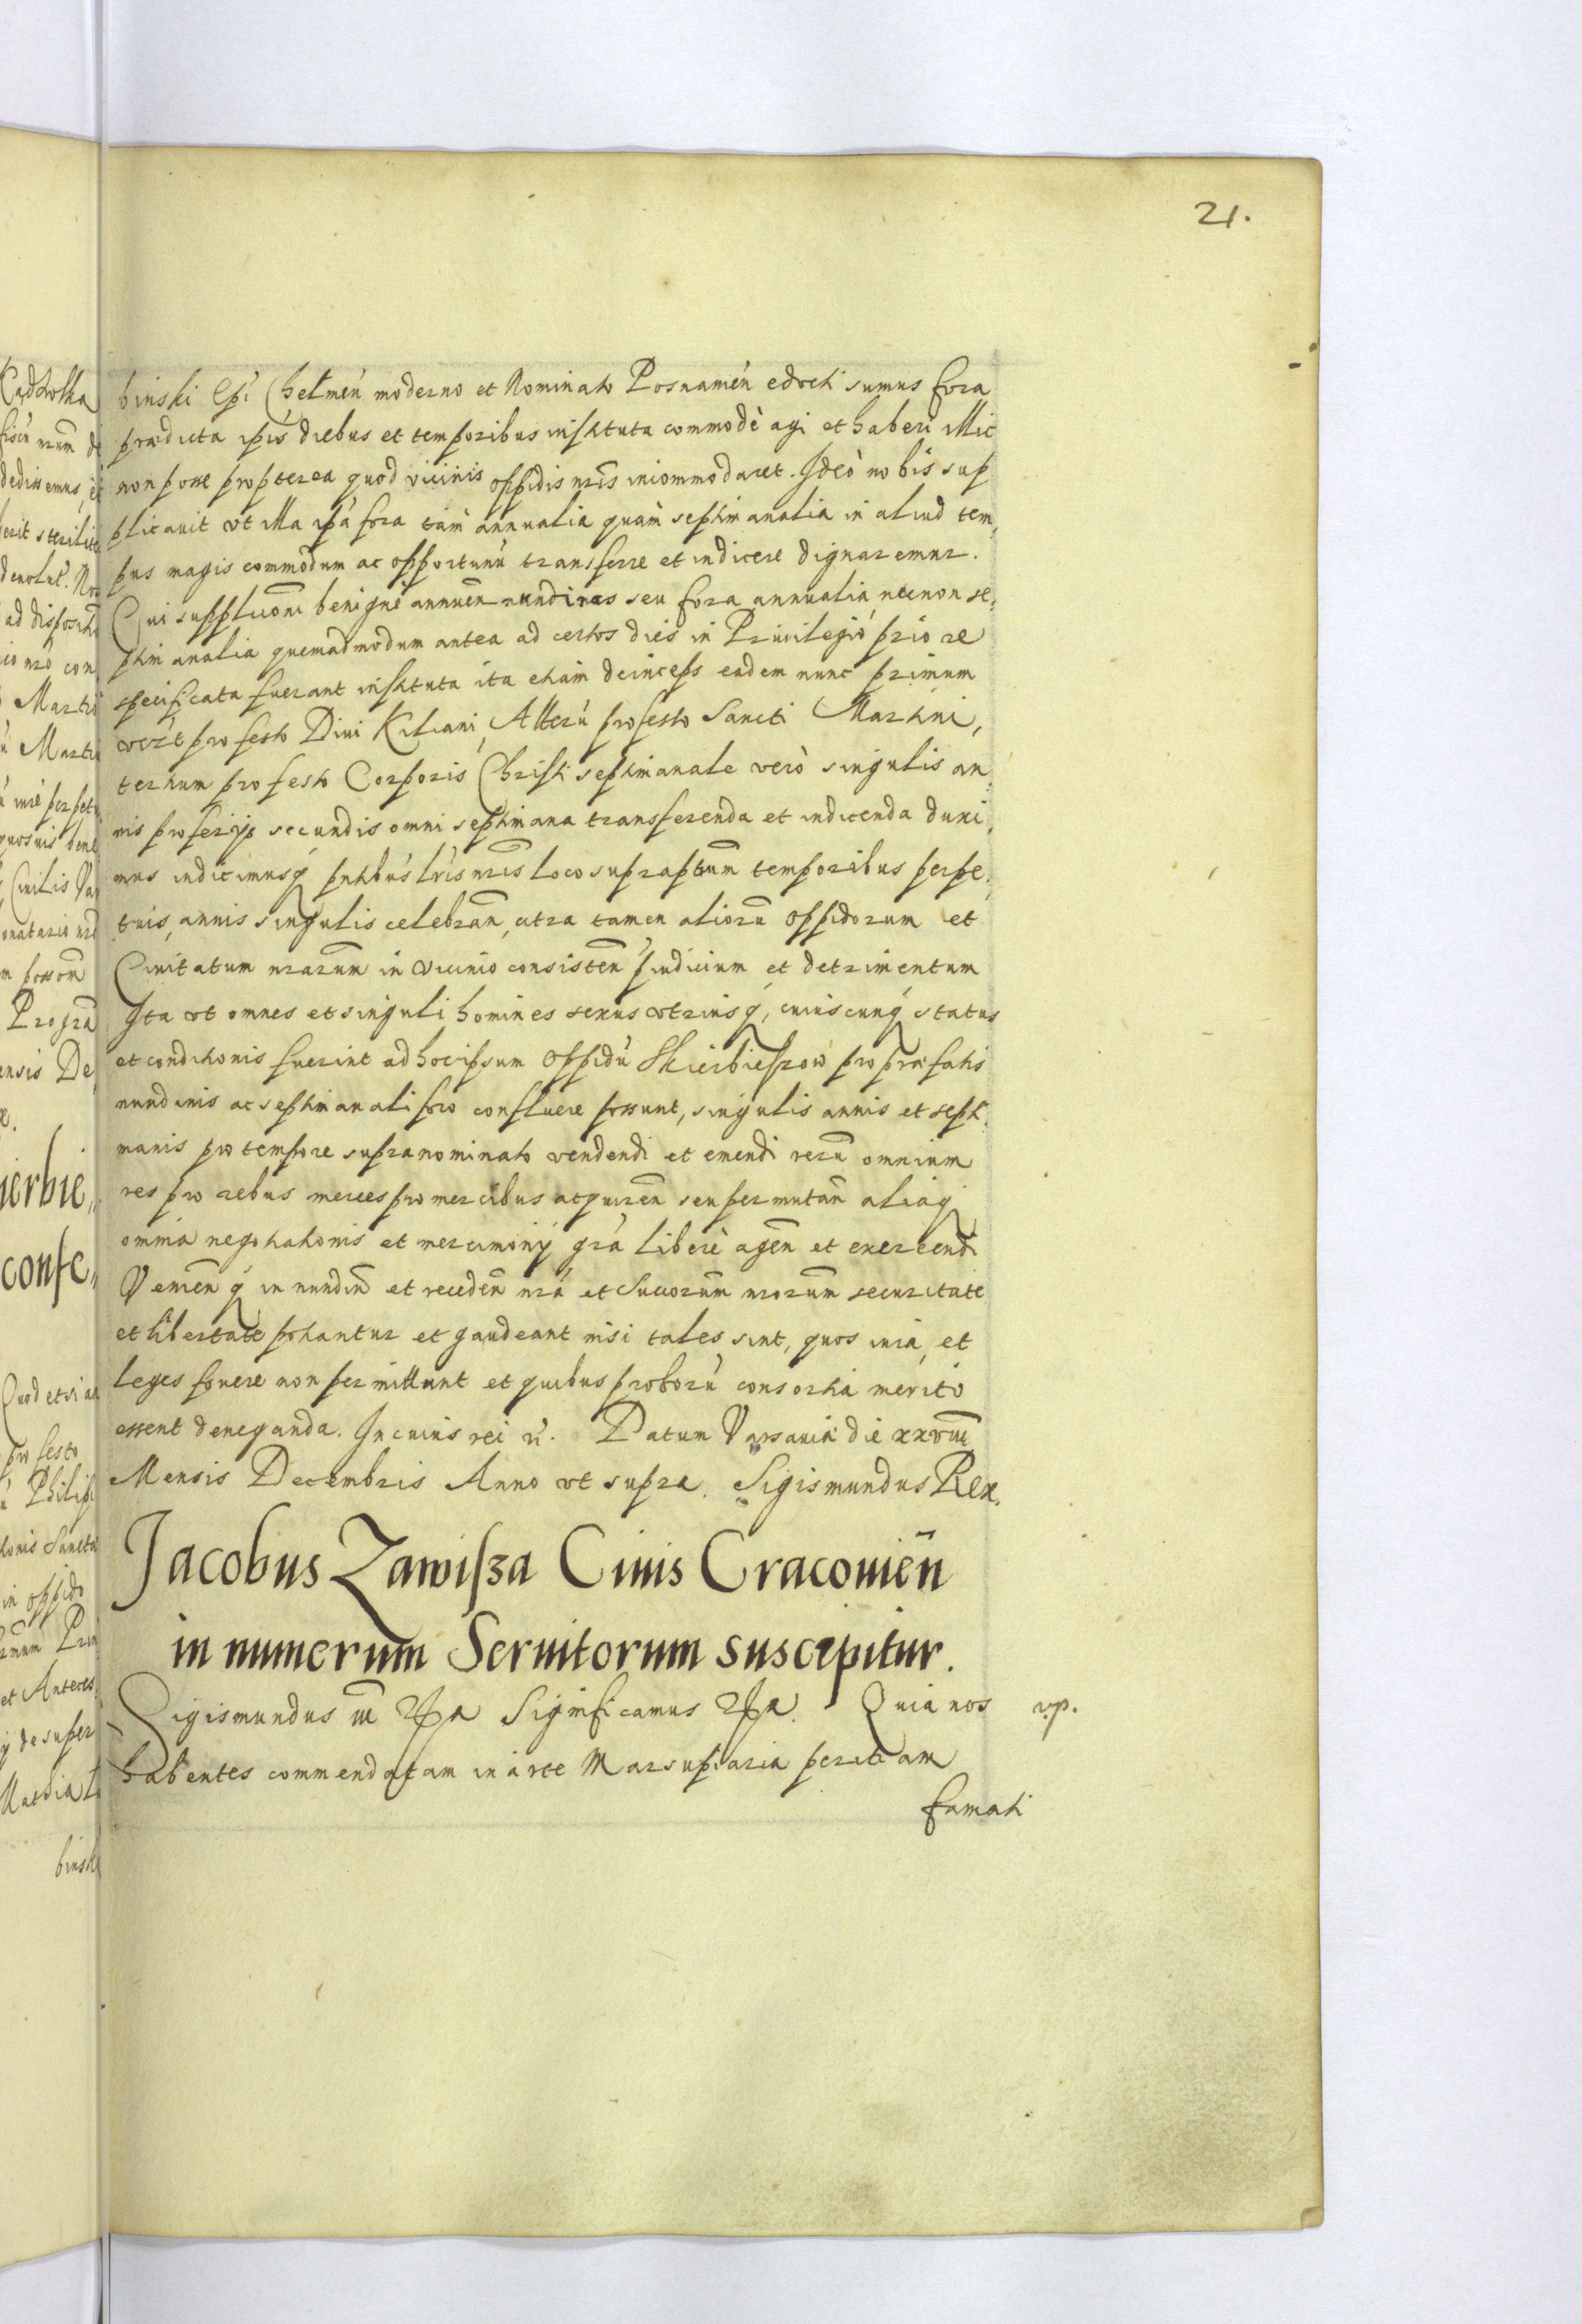 21.
binski Epi Chelmeń moderno et Nominato Posnanień edocti sumus fora
prædicta ipıs diebus et temporibus instituta commodè agi et haberi illic
non posse propterea quod vicinis oppidis nrıs incommodaret. Ideò nobis sup
plicauit vt illa ipa fora tam annualia quàm septimanalia in aliud tem,
pus magis commodum ac opportunū transferre et indicere dignaremur.
Cui suppliconi benigne annuen nundinas seu fora annualia, necnon se,
ptimanalia quemadmodum antea ad certos dies in Priuilegio priore
specificata fuerant instituta ita etiam deinceps eadem nunc primum
vrzt pro festo Diui Kiliani, Alterū pro festo Sancti Martini,
tertium pro festo Corporis Christi septimanale verò singulis an
nis pro ferijs secundis omni septimana transferenda et indicenda duxi,
mus indicimusq pntibus lrıs nrıs loco supraptum temporibus perpe,
tuis, annis singulis celebran, citra tamen aliorū oppidorum et
Ciuitatum nrarum in vicinio consisten piudicium et detrimentum
Ita vt omnes et singuli homines sexus vtriusq, cuiuscunq status
et conditionis fuerint ad hoc ipsum oppidū Skierbieszow pro præfatis
nundinis ac septimanali foro confluere possunt, singulis annis et septi,
manis pro tempore supranominato vendendi et emendi rerū omnium
res pro rebus merces pro mercibus acquiren seu permutan aliaq
omnia negotiationis et mercimonij gra liberè agen et exercendi
Venien q in nundin et receden nra et Succorum nrorum securitate
et libertate potiantur et gaudeant nisi tales sint, quos iura, et
leges fouere non permittunt et quibus proborū consortia merito
essent deneganda. In cuius rei ń. Datum Varsauiæ die xxviii
Mensis Decembris Anno vt supra. Sigismundus Rex.
Jacobus Zawisza Ciuis Cracouien
in numerum Seruitorum suscipitur.
Sigismundus iii Rpa Significamus Rpa. Quia nos v.p.
habentes commendatam in arte Marsupiaria peritiam
famati